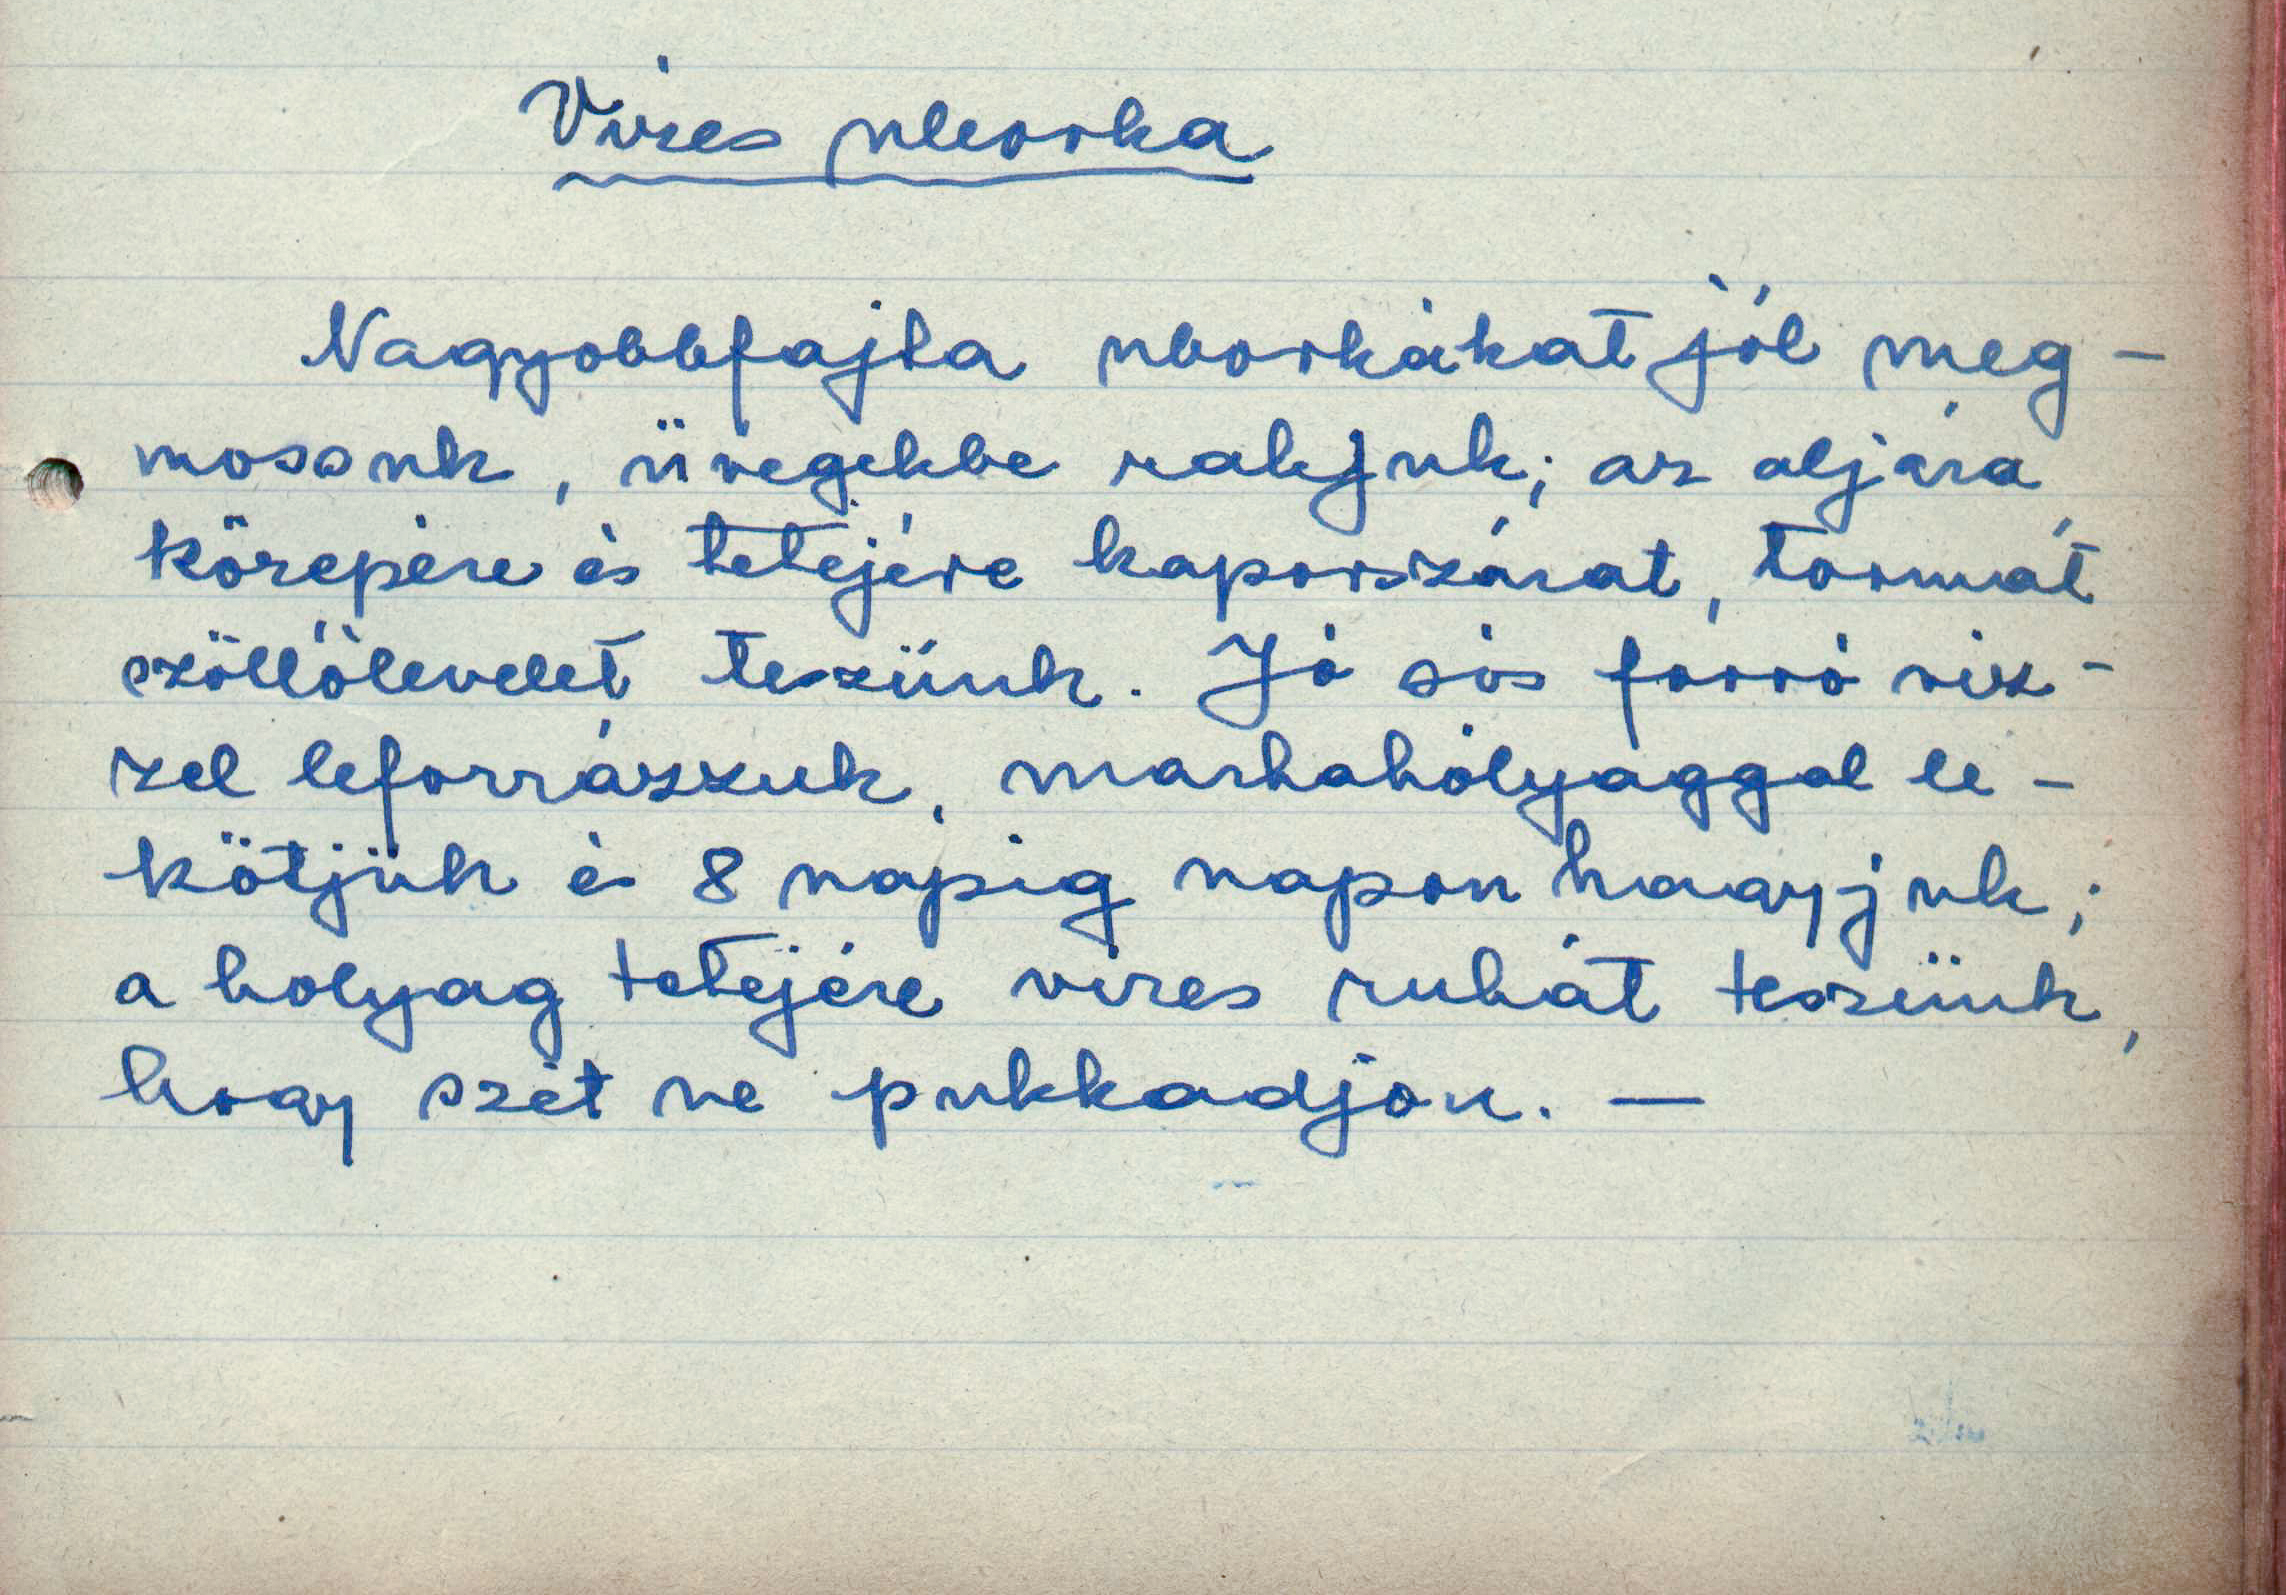 Vizes uborka
Nagyobbfajta uborkákat jól meg-
mosunk, üvegekbe rakjuk; az aljára,
közepére és tetejére kaporszárat, tormát
szöllőlevelet teszünk. Jó sós forró viz-
zel leforrázzuk, marhahólyaggal le-
kötjük és 8 napig napon hagyjuk;
a holyag tetejére vizes ruhát teszünk,
hogy szét ne pukkadjon. —